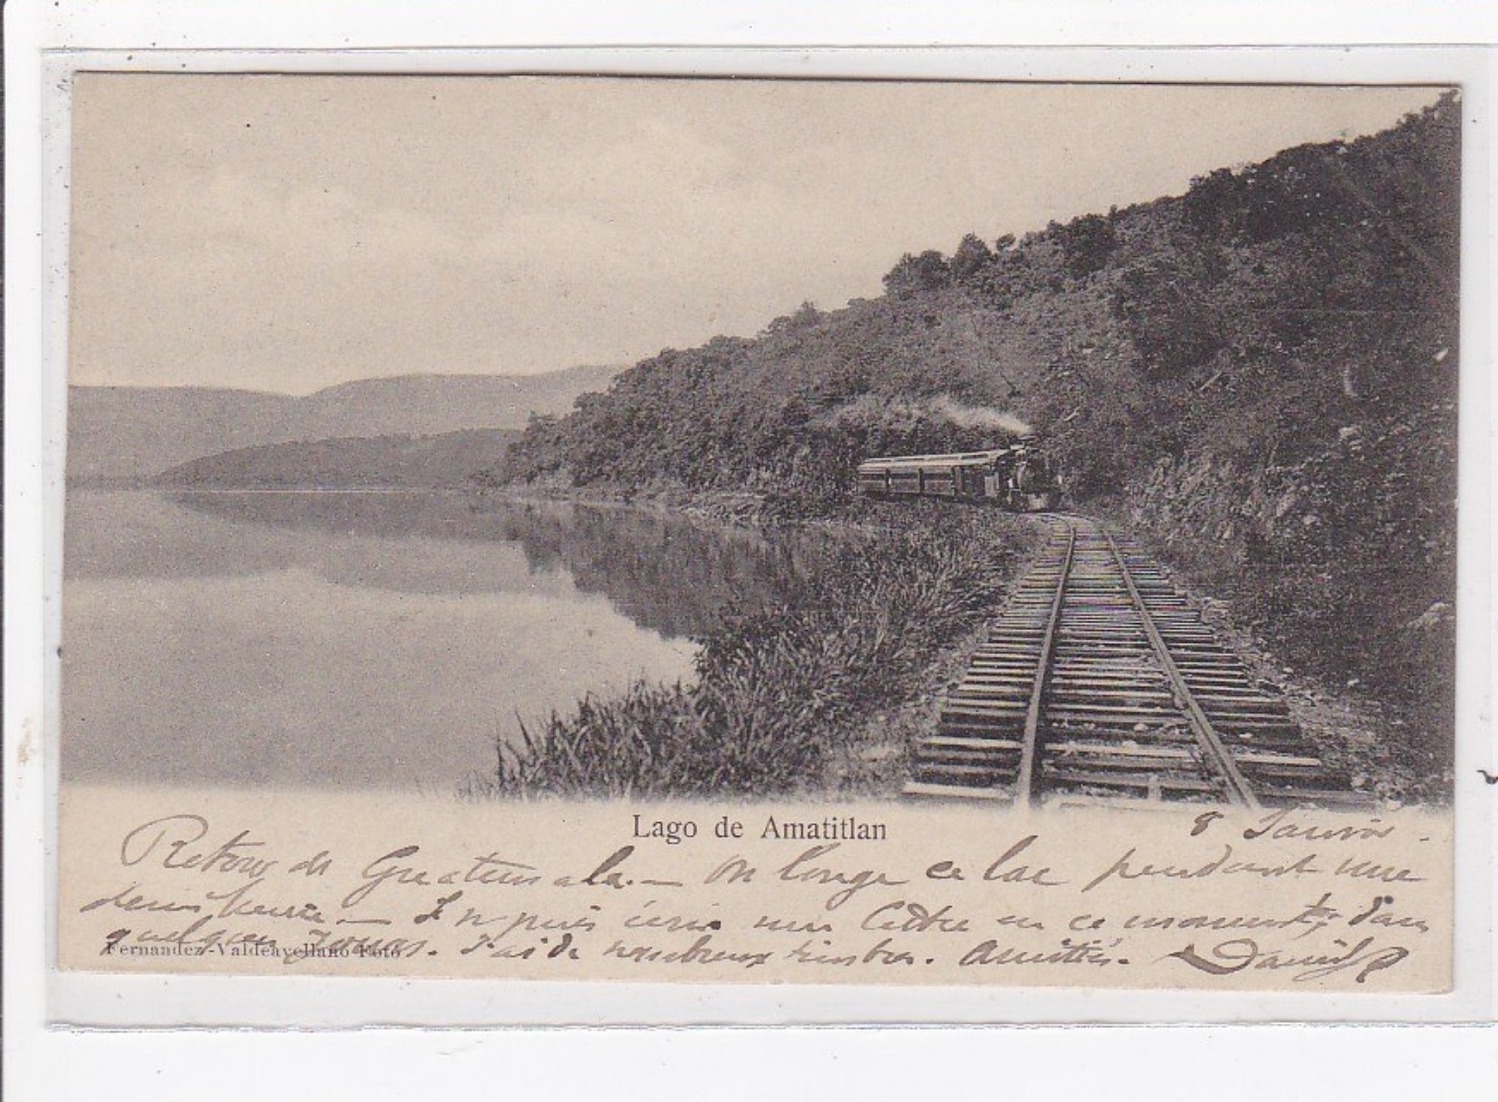 Lago de Amatitlan
8 Janvier.
Retour de Guatemala. — On longe ce lac pendant une
demi heure — Je n puis écrire une lettre en ce moment, dans
quelques jours. J'ai de nombreux timbres. Amitiés. Daniel
Fernandez-Valdeavellano Foto